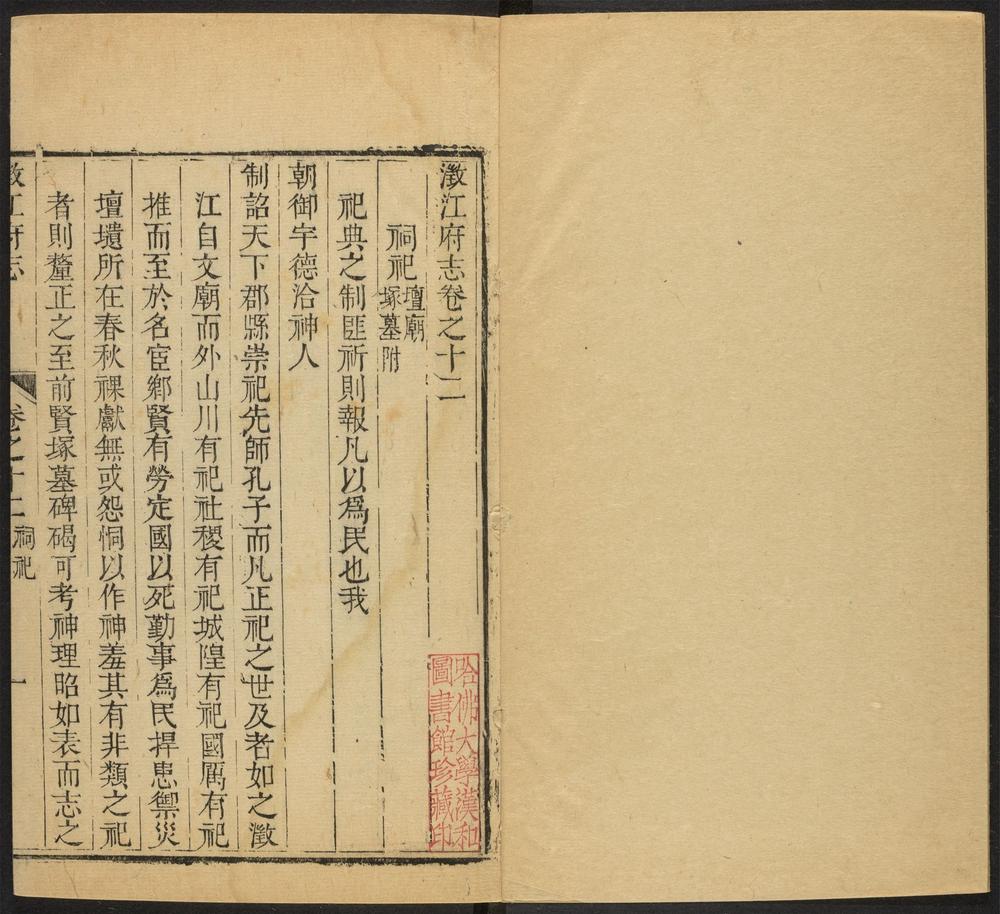 澂江府志卷之十二
祠祀壇廟
塚墓附
祀典之制匪祈則報凡以爲民也我
朝御宇德洽神人
制詔天下郡縣崇祀先師孔子而凡正祀之世及者如之澂
江自文廟而外山川有祀社稷有祀城隍有祀國厲有祀
推而至於名宦鄕賢有勞定國以死勤事爲民捍患禦災
壇壝所在春秋祼獻無或怨恫以作神羞其有非類之祀
者則釐正之至前賢塚墓碑碣可考神理昭如表而志之
澂江府志
卷之十二
祠祀
一
哈佛大學漢和
圖書館珍藏印